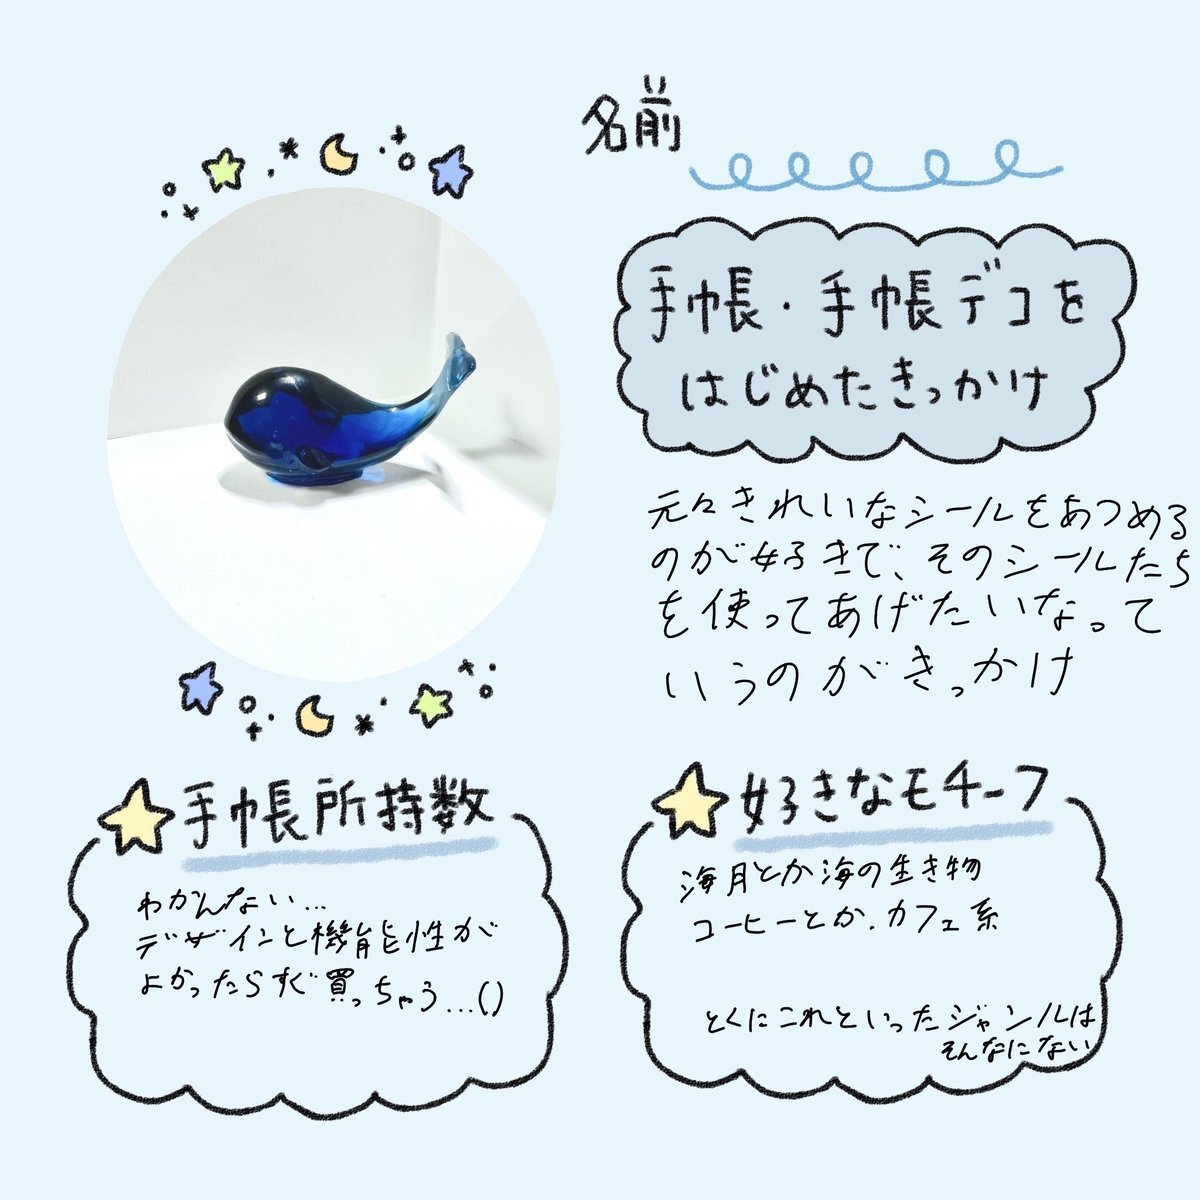 名前
手帳・手帳デコを
はじめたきっかけ
元々きれいなシールをあつめる
のが好きで、そのシールたち
を使ってあげたいなって
いうのがきっかけ
手帳所持数
わかんない...
デザインと機能性が
よかったらすぐ買っちゃう...()
好きなモチーフ
海月とか海の生き物
コーヒーとか.カフェ系
とくにこれといったジャンルは
そんなにない